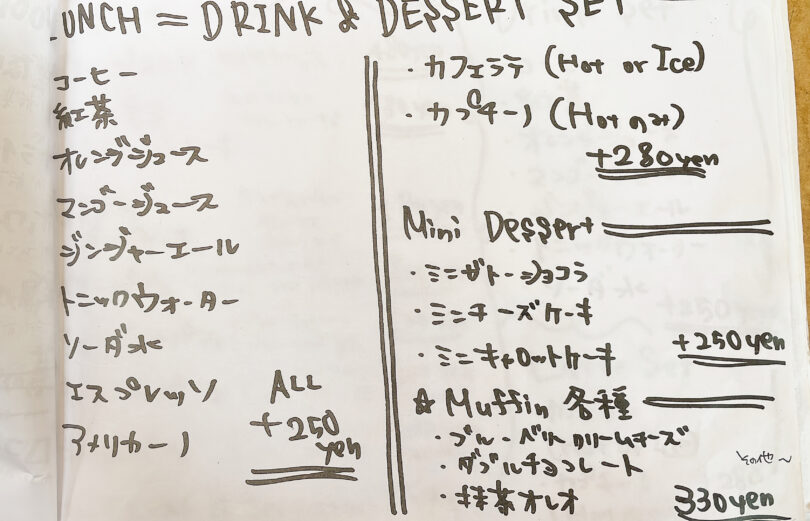 LUNCH = DRINK & DESSERT SET
コーヒー
紅茶
オレンジジュース
マンゴージュース
ジンジャーエール
トニックウォーター
ソーダ水
エスプレッソ
アメリカーノ
ALL
+250
yen
・カフェラテ (Hot or Ice)
・カプチーノ (Hot のみ)
+280yen
Mini Dessert
・ミニガトーショコラ
・ミニチーズケーキ
・ミニキャロットケーキ
+250yen
☆ Muffin 各種
・ブルーベリークリームチーズ
・ダブルチョコレート
・抹茶オレオ
その他〜
330yen